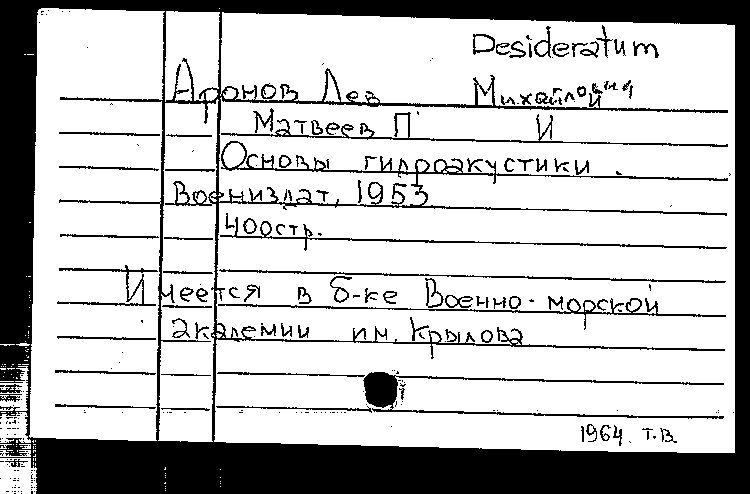 Desideratum
Аронов Лев Михайлович
Матвеев П И
Основы гидроакустики.
Воениздат, 1953
400 стр.
Имеется в б-ке Военно-морской
академии им. Крылова
1964. т.в.